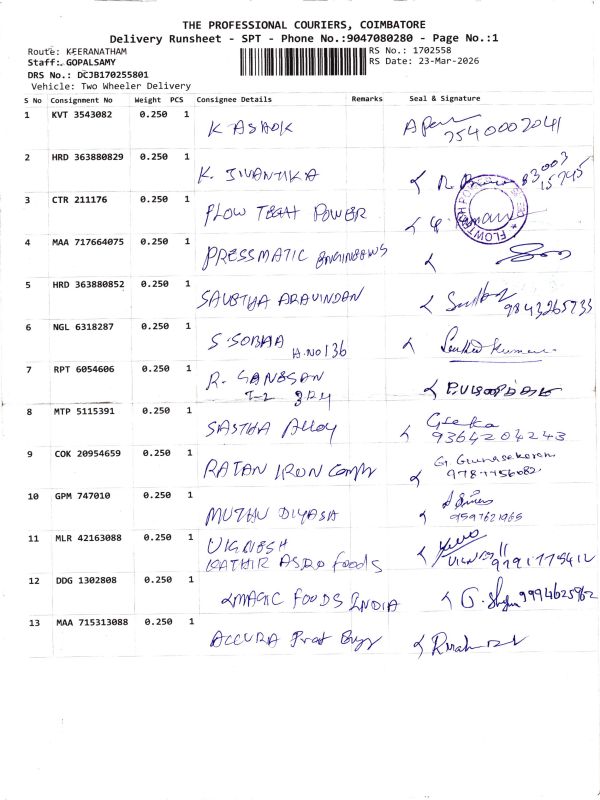 THE PROFESSIONAL COURIERS, COIMBATORE
Delivery Runsheet - SPT - Phone No.:9047080280 - Page No.:1
Route: KEERANATHAM
Staff: GOPALSAMY
DRS No.: DCJB170255801
Vehicle: Two Wheeler Delivery
RS No.: 1702558
RS Date: 23-Mar-2026
S No Consignment No Weight PCS Consignee Details Remarks Seal & Signature
1 KVT 3543082 0.250 1 K ASHOK 7540002041
2 HRD 363880829 0.250 1 K. JIVANTIKA 83003 15745
3 CTR 211176 0.250 1 FLOW TECH POWER
4 MAA 717664075 0.250 1 PRESSMATIC ENGINEERS
5 HRD 363880852 0.250 1 ARAVINDAN 9843265733
6 NGL 6318287 0.250 1 S. SOBHA
H.NO 136
7 RPT 6054606 0.250 1 R. GANESAN
8 MTP 5115391 0.250 1 SASTHA Alloy Geetha
9364204243
9 COK 20954659 0.250 1 RATAN IRON G. Gunasekaran
10 GPM 747010 0.250 1 MUTHU
9597621965
11 MLR 42163088 0.250 1 VIGNESH
KATHIR AGRO Foods
12 DDG 1302808 0.250 1 IMAGIC FOODS INDIA 9994625962
13 MAA 715313088 0.250 1 ACCURA